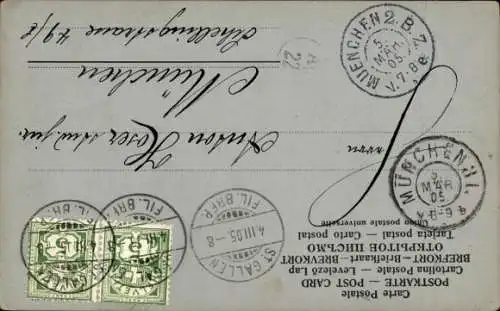 Carte Postale
POSTKARTE — POST CARD
Cartolina Postale — Levelező Lap
BREFKORT — Briefkaart — BREVKORT
ОТКРЫТОЕ ПИСЬМО
Tarjeta postal — Carta postal
Union postale universelle
Herrn
Anton Hoser stud. jur.
München
Schellingstrasse 49/I
MUENCHEN 2. B.Z.
5.
MÄR.
05.
V. 7-8
MÜNCHEN 31.
5.
MÄR
05
V. 8-9
A.
22
ST. GALLEN
4.III.05.-8
FIL. BRF. P.
ST. GALLEN
FIL. BRF. P.
ST. GALLEN
FIL. BRF.
5
5